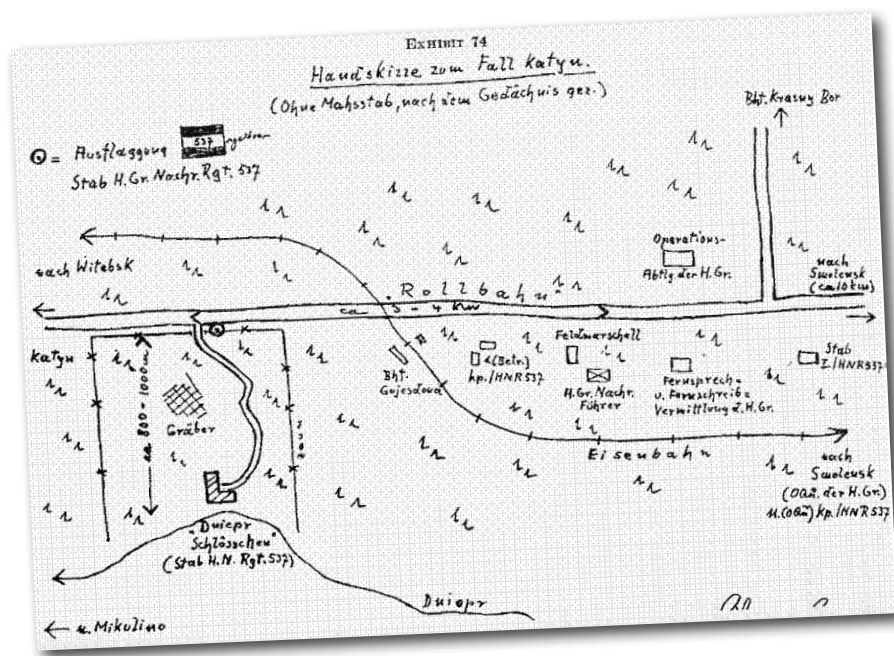 EXHIBIT 74
Handskizze zum Fall Katyn.
(Ohne Mahsstab, nach dem Gedächnis gez.)
Bhf. Krasny Bor
= Ausflaggung
537
Stab H. Gr. Nachr. Rgt. 537
nach Witebsk
Operations-
Abtlg der H. Gr.
nach
Smolensk
(ca 10 km)
"Rollbahn"
ca 3 - 4 km
Katyn
ca 800-1000 m
Gräber
Zaun
Bhf.
Gnjesdowa
4 (Betr.)
Kp./HNR 537
Feldmarschall
H. Gr. Nachr.
Führer
Fernsprech-
u. Fernschreib-
Vermittlung d. H. Gr.
Stab
I./HNR 537
Eisenbahn
nach
Smolensk
(OQu. der H. Gr.
u. (OQu) Kp./HNR 537
"Dniepr
Schlösschen"
(Stab H. N. Rgt. 537)
Dniepr
n. Mikulino